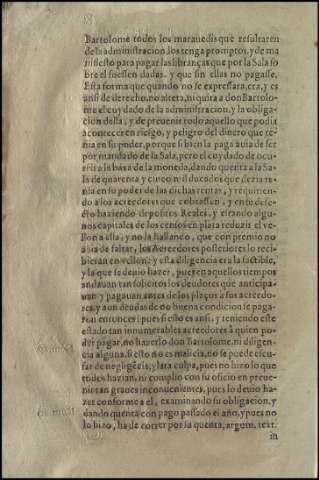 Bartolome todos los marauedis que resultaren
de la administracion los tenga promptos, y de ma
nifiesto para pagar las libranças que por la Sala so
bre el fuessen dadas, y que sin ellas no pagasse.
Esta forma que quando no se expressara, era, y es
ansi de derecho, no altera, ni quita a don Bartolo-
me el cuydado de la administracion, y la obliga-
cion della, y de preuenir todo aquello que podia
acontecer en riesgo, y peligro del dinero que te-
nia en su poder, porque si bien la paga auia de ser
por mandado de la Sala, pero el cuydado de ocu-
rrir a la baxa de la moneda, dando quenta a la Sa-
la de quarenta y cinco mil ducados que dezia te-
nia en su poder de las dichas rentas, y requirien-
do a los acreedores que cobrassen, y en su defe-
cto haziendo depositos Reales, y estando algu-
nos capitales de los censos en plata reduzir el ve-
llon a ella, y no la hallando, que con premio no
auia de faltar, los Acreedores posteriores lo reci-
bieran en vellon: y esta diligencia era la factible,
y la que se deuio hazer, pues en aquellos tiempos
andauan tan solicitos los deudores que anticipa-
uan y pagauan antes de los plaços a sus acreedo-
res, y aun deudas de no buena condicion se paga-
ron entonces: pues si esto es ansi, y teniendo este
estado tan innumerables acreedores à quien po-
der pagar, no hazerlo don Bartolome, ni diligen-
cia alguna, si esto no es malicia, no se puede escu-
sar de negligẽcia, y lata culpa, pues no hizo lo que
todos hazian, ni cumplio con su oficio en preue-
nir tan graues inconuenientes, pues lo deuio ha-
zer conforme a el, examinando su obligacion, y
dando quenta con pago passado el año, y pues no
lo hizo, ha de correr por su quenta, argum. text.
in